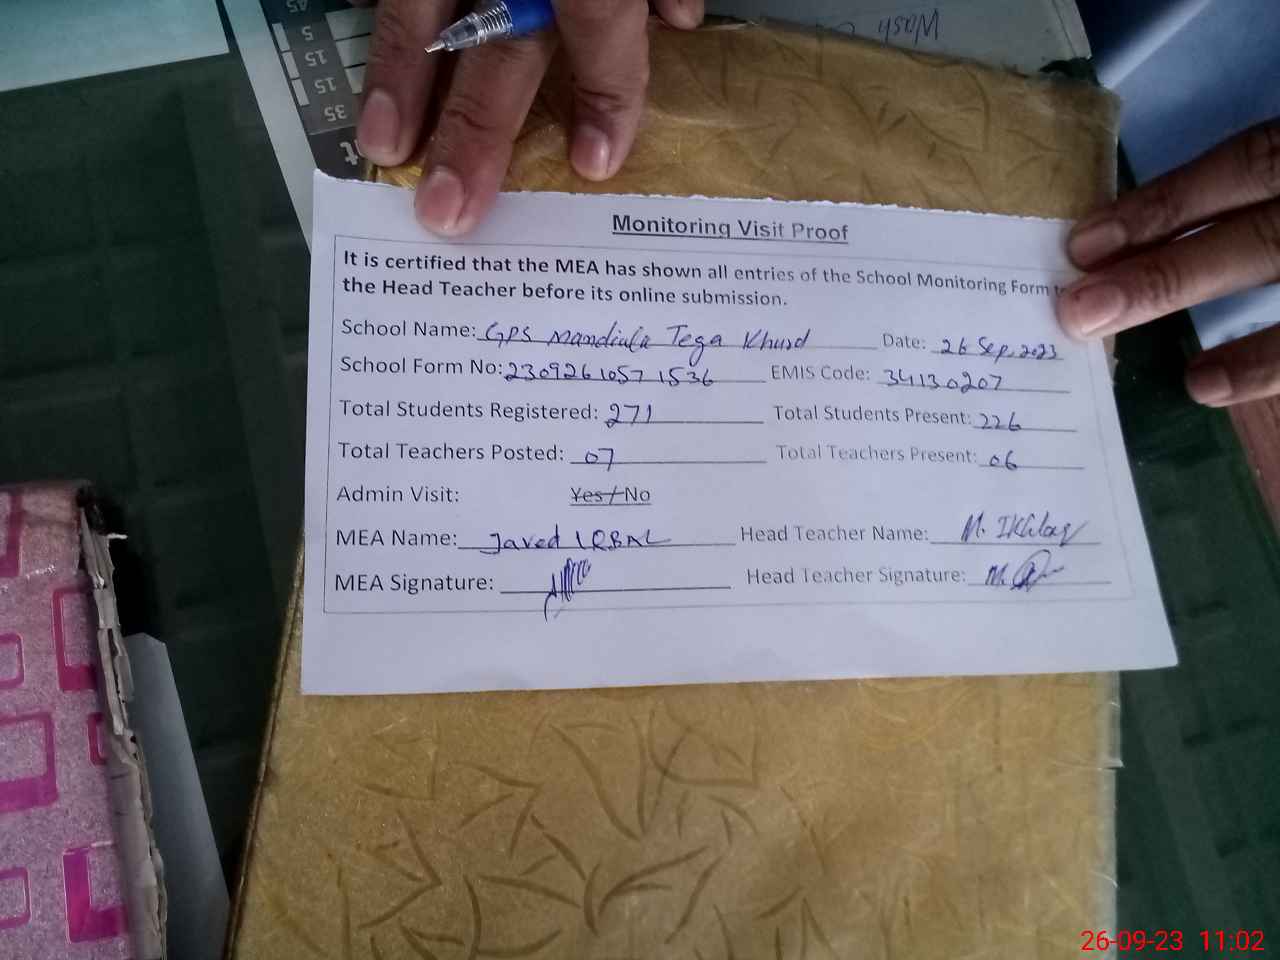 Wash
45
5
15
15
35
Monitoring Visit Proof
It is certified that the MEA has shown all entries of the School Monitoring Form to
the Head Teacher before its online submission.
School Name: GPS Mandiala Tega Khurd Date: 26 Sep, 2023
School Form No: 2309261057 1536 EMIS Code: 34130207
Total Students Registered: 271 Total Students Present: 226
Total Teachers Posted: 07 Total Teachers Present: 06
Admin Visit: Yes / No
MEA Name: Javed IQBAL Head Teacher Name: M. Ikhlaq
MEA Signature: Head Teacher Signature: M.
26-09-23 11:02